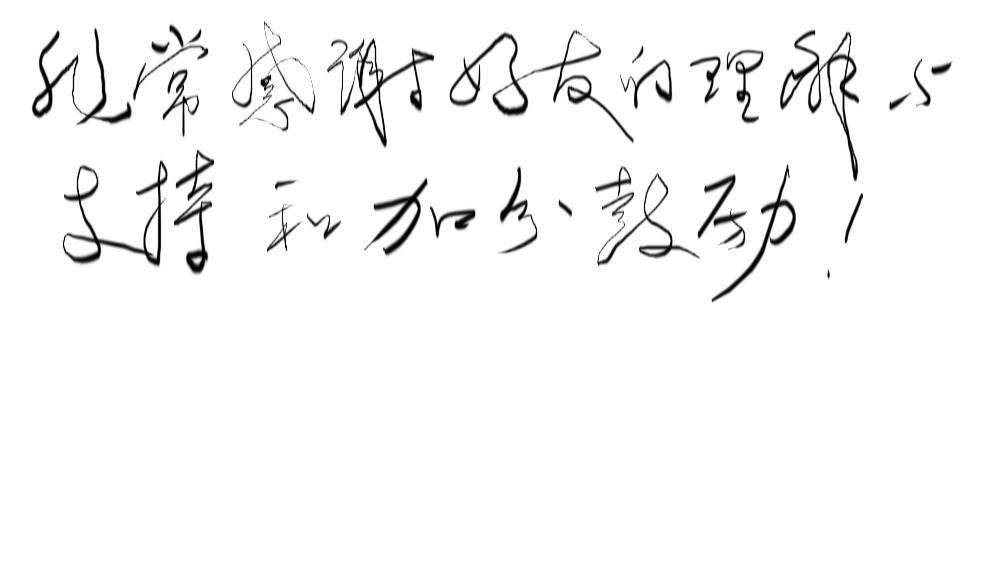 非常感谢好友的理解与
支持和加分鼓励！